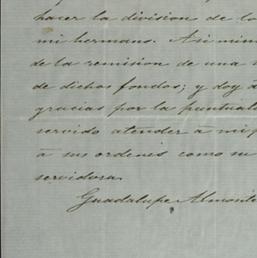 hacer la division de lo
mi hermano. Asi mism
de la remision de una
de dichos fondos; y doy á
gracias por la puntual
servido atender á mi
á sus ordenes como su
servidora.
Guadalupe Almonte